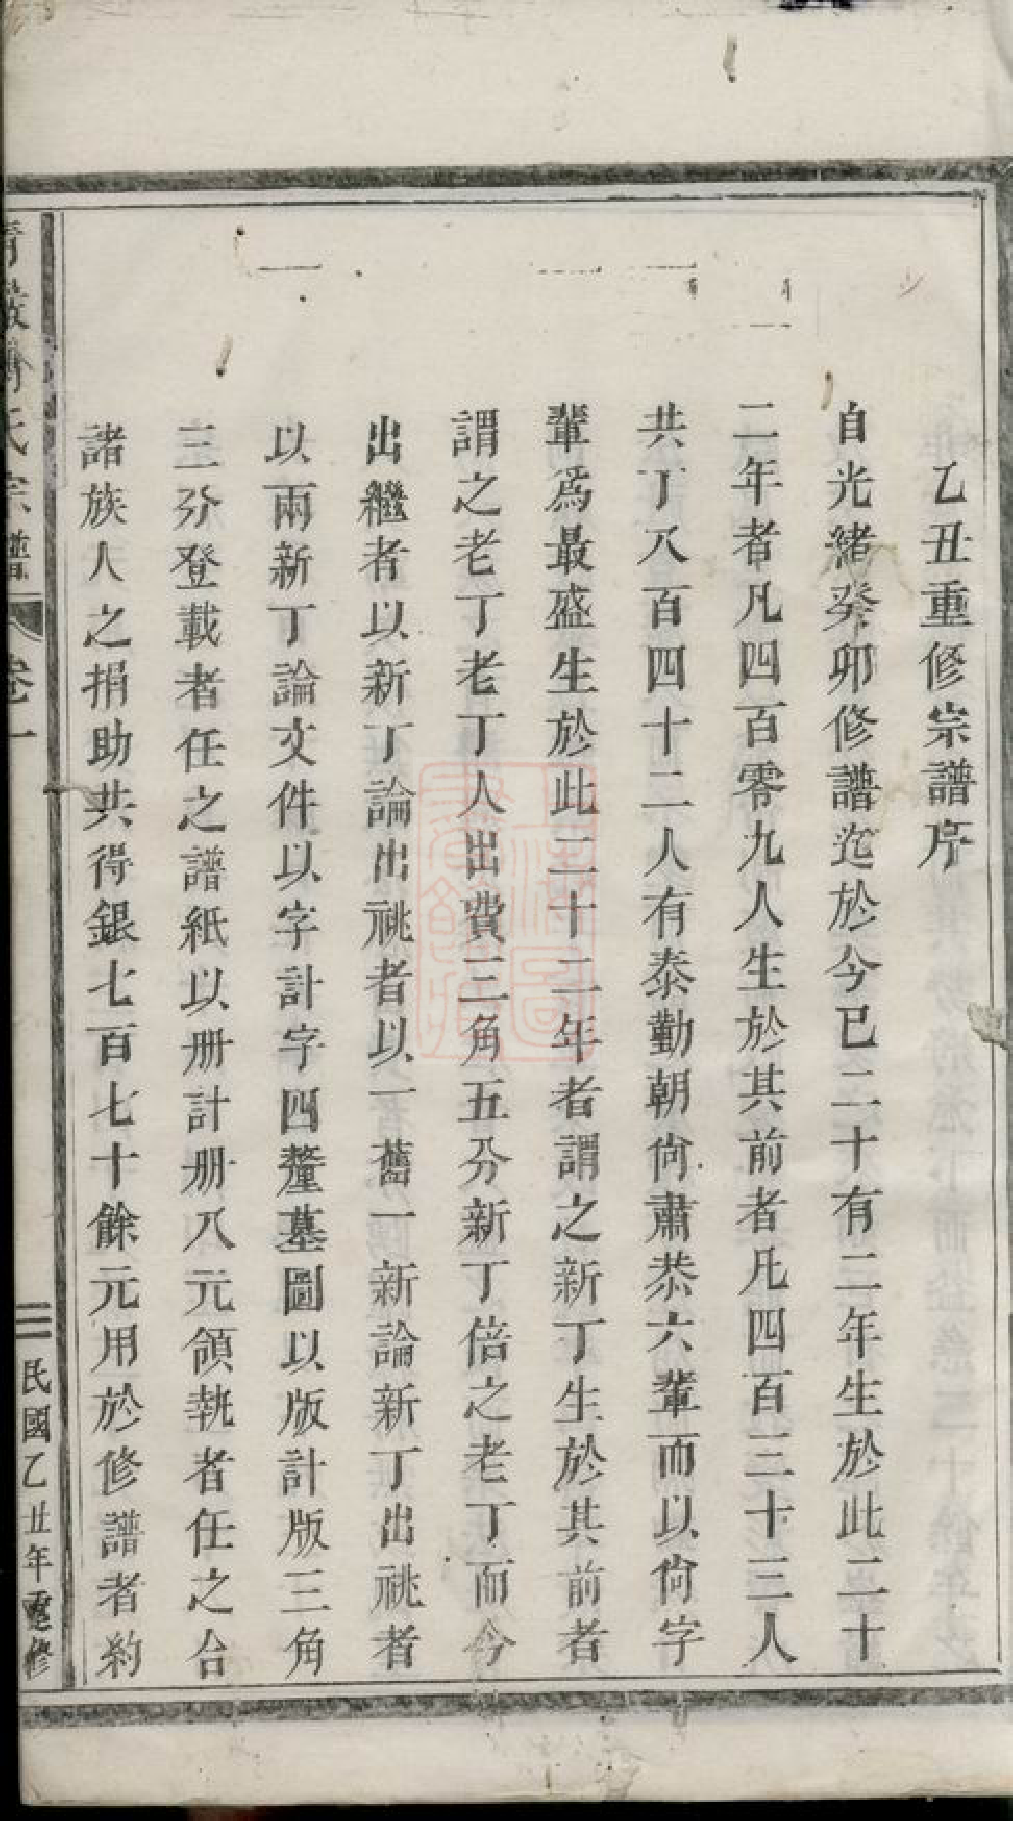 乙丑重修宗譜序
自光緒癸卯修譜迄於今已二十有二年生於此二十
二年者凡四百零九人生於其前者凡四百三十三人
共丁八百四十二人有泰勤朝尙肅恭六輩而以尙字
輩爲最盛生於此二十二年者謂之新丁生於其前者
謂之老丁老丁人出費三角五分新丁倍之老丁而今
出繼者以新丁論出祧者以一舊一新論新丁出祧者
以兩新丁論文件以字計字四釐墓圖以版計版三角
三分登載者任之譜紙以册計册八元領執者任之合
諸族人之捐助共得銀七百七十餘元用於修譜者約
氏宗譜 卷一 二 民國乙丑年重修